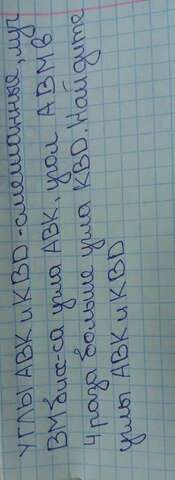 УГЛЫ АВК и КВD - смешанные, луч
ВМ бис-са угла АВК, угол АВМ в
4 раза больше угла КВD. Найдите
углы АВК и КВD